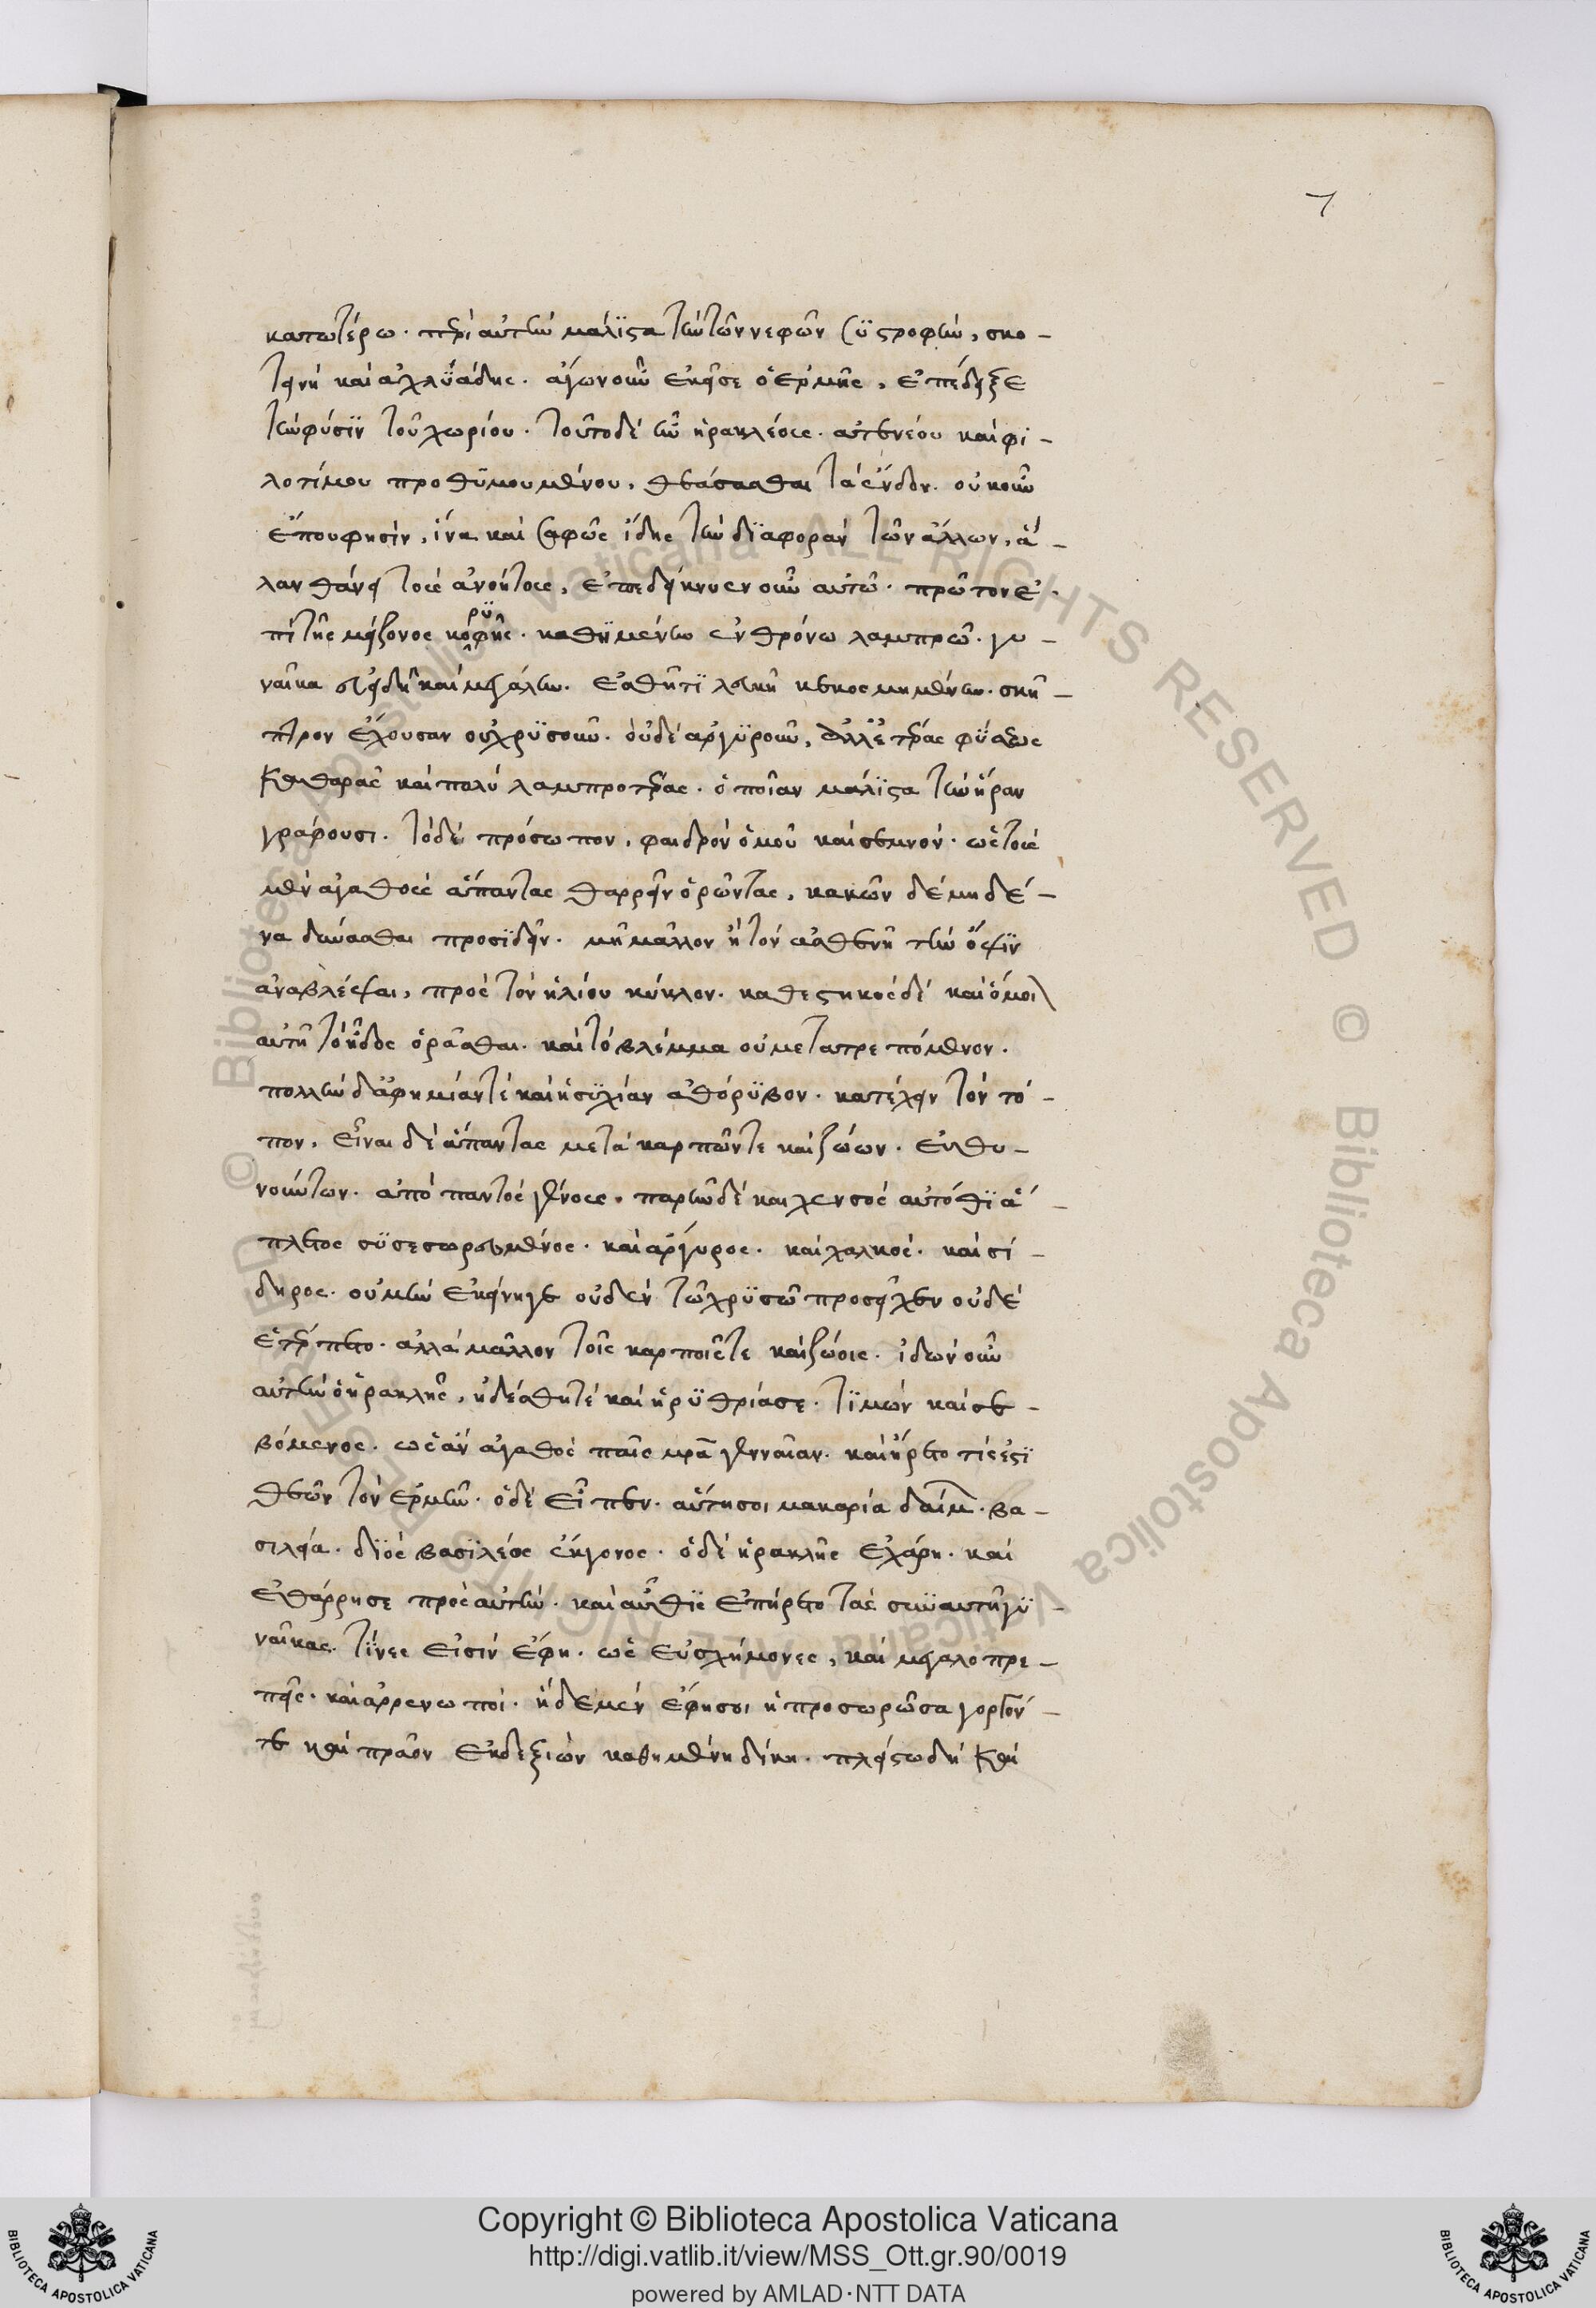 7
κατωτέρω. περὶ αὐτὴν μάλϊστα τὴν τῶν νεφῶν συστροφὴν, σκο-
τεινὴ καὶ ἀχλϋώδης. ἄγων οὖν ἐκεῖσε ὁ ἑρμῆς, ἐπέδειξε
τὴν φύσϊν τοῦ χωρίου. τοῦτο δὲ ἦν ἡρακλέους. ἅτε νέου καὶ φι-
λοτίμου προθϋμουμένου, θεάσασθαι τὰ ἔνδον. οὐκοῦν
ἕπου φησὶν, ἵνα καὶ σαφῶς ἴδης τὴν δϊαφορὰν τῶν ἄλλων, ἃ
λανθάνει τοὺς ἀνοήτους, ἐπεδείκνυεν οὖν αὐτῶ. πρῶτον ἐ-
πὶ τῆς μείζονος κορϋφῆς. καθημένην ἐν θρόνω λαμπρῶ. γυ-
ναῖκα εὐειδῆ καὶ μεγάλην. ἐσθῆτϊ λευκῆ κεκοσμημένην. σκῆ-
πτρον ἔχουσαν οὐ χρϋσοῦν. οὐδὲ ἀργϋροῦν, ἀλλ' ἑτέρας φϋσεως
καθαρᾶς καὶ πολὺ λαμπροτέρας. ὁποῖαν μάλϊστα τὴν ἥραν
γράφουσι. τὸ δὲ πρόσωπον, φαιδρὸν ὁμοῦ καὶ σεμνόν. ὡς τοὺς
μὲν ἀγαθοὺς ἅπαντας θαρρεῖν ὁρῶντας, κακῶν δὲ μηδέ-
να δύνασθαι προσϊδεῖν. μὴ μᾶλλον ἢ τὸν ἀσθενῆ τὴν ὄψϊν
ἀναβλέψαι, πρὸς τὸν ἡλίου κύκλον. καθεστηκὸς δὲ καὶ ὅμοι
αὐτῆ τὸ εἶδος ὁρᾶσθαι. καὶ τὸ βλέμμα οὐ μετατρεπόμενον.
πολλὴν δ' εὐφημίαν τὲ καὶ ἡσϋχίαν ἀθόρϋβον. κατέχειν τὸν τό-
πον, εἶναι δὲ ἅπαντας μετὰ καρπῶν τε καὶ ζώων. εὐθυ-
νούντων. ἀπὸ παντὸς γένους. παρῆν δὲ καὶ χρυσὸς αὐτόθϊ ἄ-
πλετος σϋσεσωρευμένος. καὶ ἄργυρος. καὶ χαλκὸς. καὶ σί-
δηρος. οὐ μὴν ἐκείνη γε οὐδὲν τῶ χρϋσῶ προσεῖχεν οὐδὲ
ἐτέρπετο. ἀλλὰ μᾶλλον τοῖς καρποῖς τε καὶ ζώοις. ἰδὼν οὖν
αὐτὴν ὁ ἡρακλῆς, ἠδέσθη τὲ καὶ ἠρϋθρίασε. τϊμῶν καὶ σε-
βόμενος. ὡς ἂν ἀγαθὸς παῖς μρα γενναῖαν. καὶ ἤρετο τίς ἐστϊ
θεῶν τὸν ἑρμῆν. ὁ δὲ εἶπεν. αὕτη σοι μακαρία δαίμ. βα-
σιλεία. δϊὸς βασϊλέως ἔκγονος. ὁ δὲ ἡρακλῆς ἐχάρη. καὶ
ἐθάρρησε πρὸς αὐτὴν. καὶ αὖθϊς ἐπήρετο τὰς σὺν αὐτῆ γϋ-
ναῖκας. τϊνες εἰσὶν ἔφη. ὡς εὐσχήμονες, καὶ μεγαλοπρε-
πεῖς. καὶ ἀρρενωποὶ. ἥδε μέν ἔφη σοι ἡ προσορῶσα γοργόν
τε καὶ πρᾶον ἐκ δεξιῶν καθημένη δίκη. πλείστω δὴ καὶ
Copyright © Biblioteca Apostolica Vaticana
http://digi.vatlib.it/view/MSS_Ott.gr.90/0019
powered by AMLAD·NTT DATA